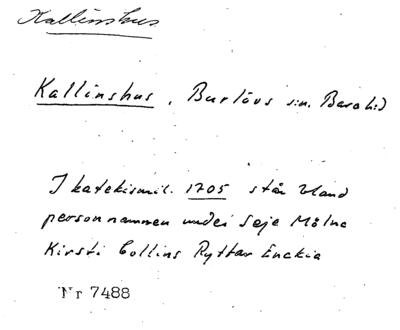 Kallinshus
Kallinshus, Burlövs sn. Bara hd
I katekismil. 1705 står bland
personnamnen under Seje Mölna
Kirsti Collins Ryttar Enckia
Nr 7488